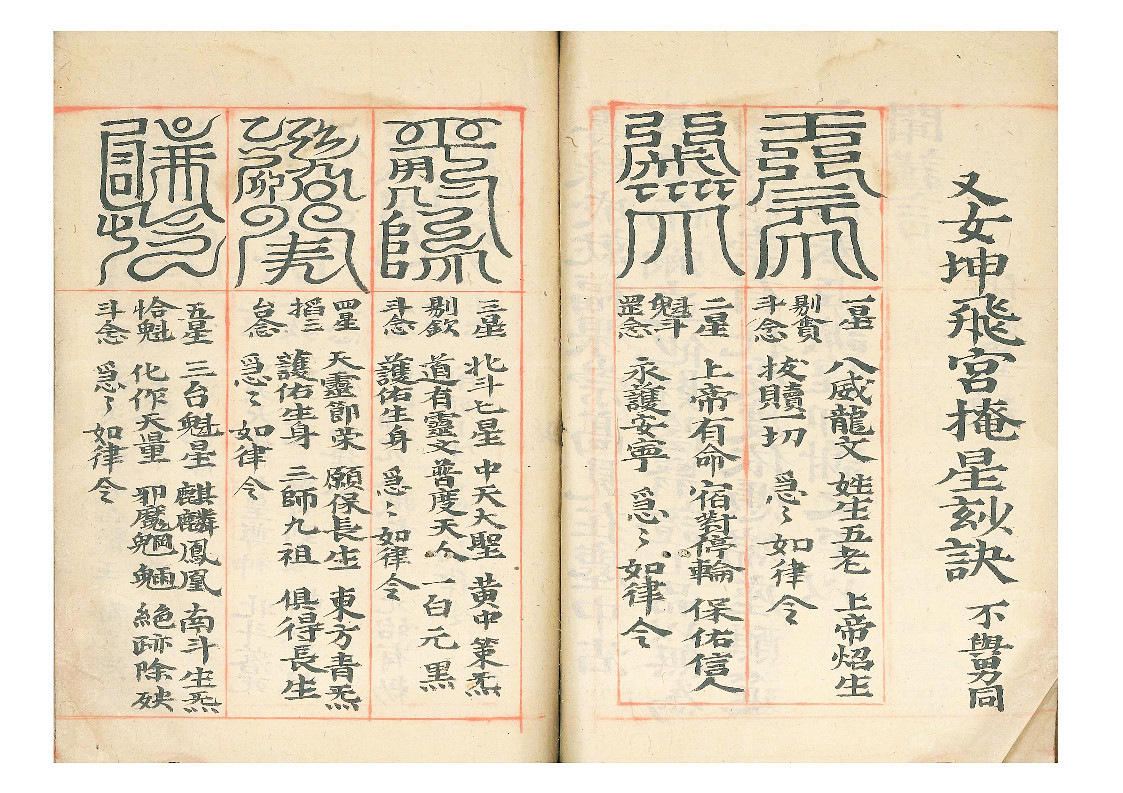 又女坤飛宮掩星玅訣 不與男同
一星 八威龍文 姓生五老 上帝炤生
剔貴 拔贖一切 急〻如律令
斗念
二星 上帝有命 宿對停輪 保佑信人
魁斗 永護安寧 急〻如律令
罡念
三星 北斗七星 中天大聖 黄中策炁
剔欽 道有靈文 普度天人 一白元黑
斗念 護佑生身 急〻如律令
四星 天靈節榮 願保長生 東方青炁
搯三 護佑生身 三師九祖 俱得長生
台念 急〻如律令
五星 三台魁星 麒麟鳳凰 南斗生炁
恰魁 化作天量 邪魔魍魎 絶跡除殃
斗念 急〻如律令